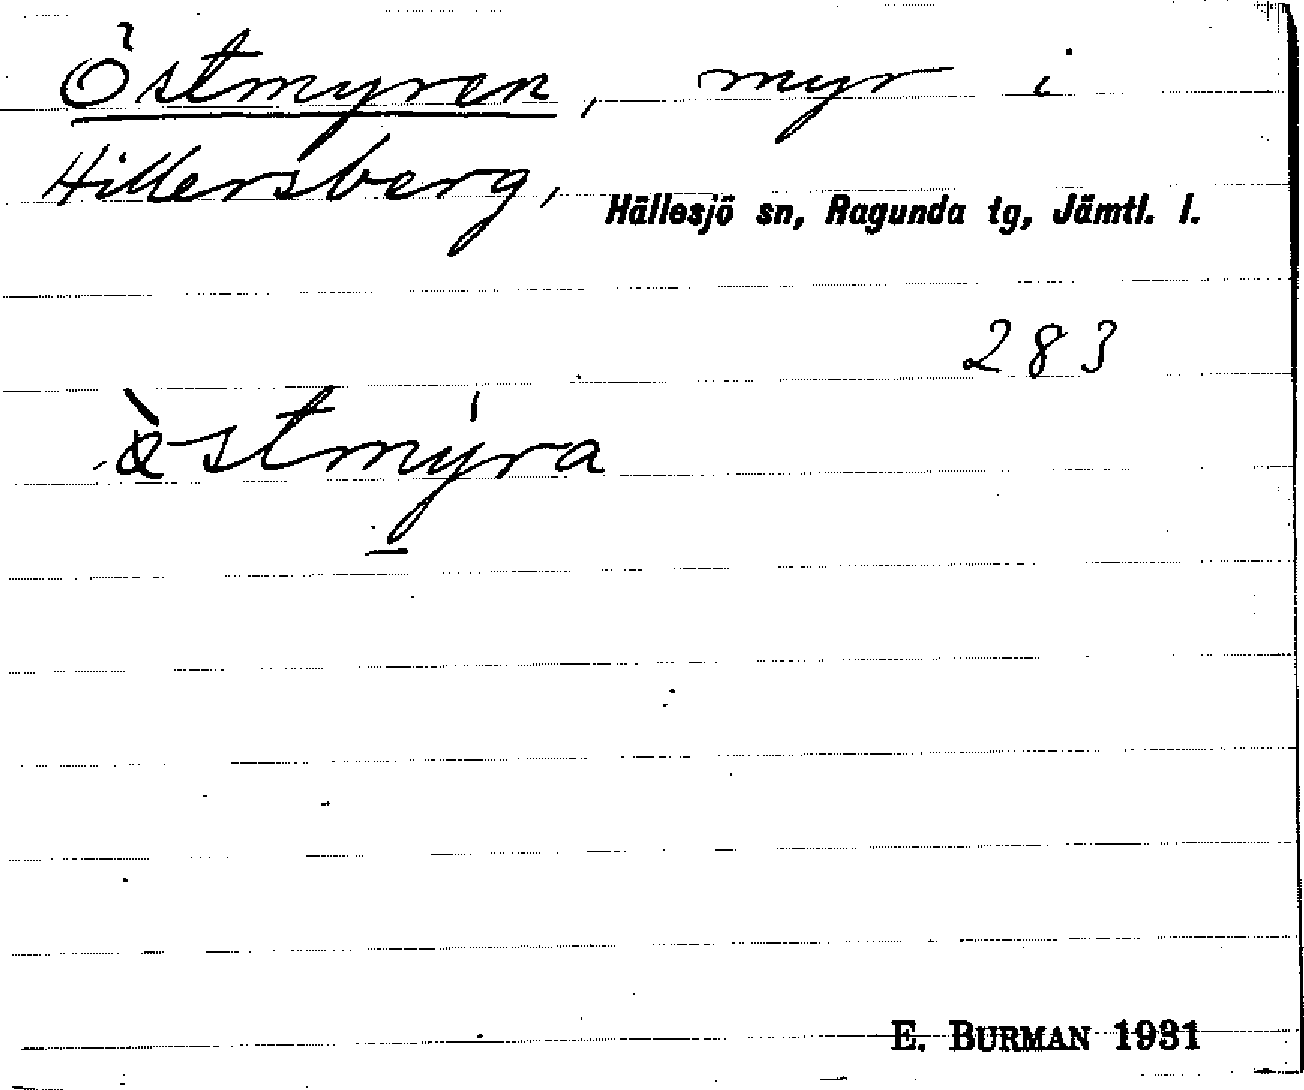 Östmyren, myr i
Hillersberg, Hällesjö sn, Ragunda tg, Jämtl. l.
283
òstmýra
E. BURMAN 1931